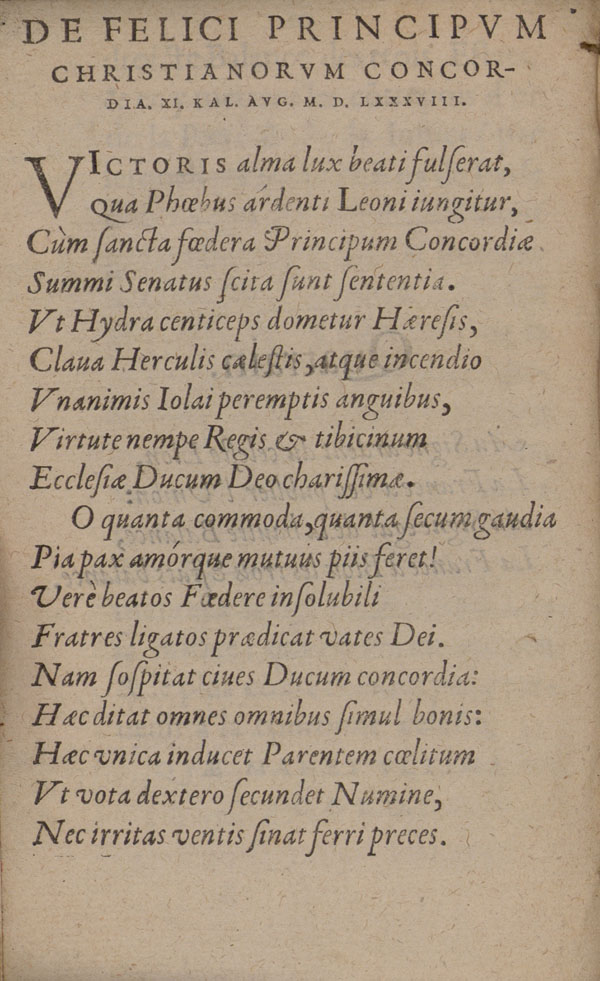 DE FELICI PRINCIPVM
CHRISTIANORVM CONCOR-
DIA. XI. KAL. AVG. M. D. LXXXVIII.
VICTORIS alma lux beati fulſerat,
Qua Phœbus árdenti Leoni iungitur,
Cùm ſancta fœdera Principum Concordiæ
Summi Senatus ſcita ſunt ſententia.
Vt Hydra centiceps dometur Hæreſis,
Claua Herculis cæleſtis, atque incendio
Vnanimis Iolai peremptis anguibus,
Virtute nempe Regis & tibicinum
Eccleſiæ Ducum Deo chariſſimæ.
O quanta commoda, quanta ſecum gaudia
Pia pax amórque mutuus piis feret!
Verè beatos Fœdere inſolubili
Fratres ligatos prædicat vates Dei.
Nam ſoſpitat ciues Ducum concordia:
Hæc ditat omnes omnibus ſimul bonis:
Hæc vnica inducet Parentem cœlitum
Vt vota dextero ſecundet Numine,
Nec irritas ventis ſinat ferri preces.